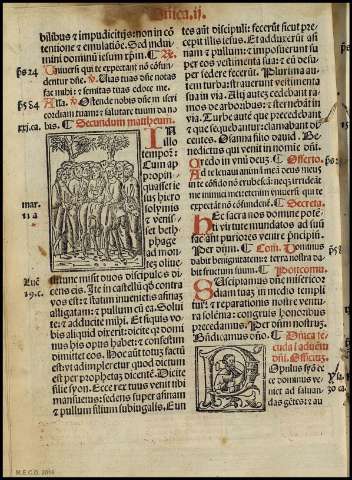 Dñica.ij.
bilibus & impudicitijs: non in cõ
tentione & emulatiõe. Sed indui
mini dominũ iesum xp̃m.
ps 24
Uniuersi qui te expectant nõ cõfun
dentur dñe. ℣. Uias tuas dñe notas
fac mihi: & semitas tuas edoce me.
ps 84
Alla. ℣. Ostende nobis dñe mi seri
cordiam tuam: & salutare tuum da no
xxj.ca.
bis. Secundum mattheum.
IN
illo
tempore:
Cum ap
propin-
quasset ie
sus hiero
solymis
& venis/
set beth/
phage
ad mon
tem oliue
mar.
11 a
Luc
19.c.
ti: tunc misit duos discipulos di
cens eis. Ite in castellũ qd̃ contra
vos est: & statim inuenietis asinaȝ
alligatam: & pullum cũ ea. Solui
te: & adducite mihi. Et si quis vo/
bis aliquid dixerit: dicite qr domi
nus his opus habet: & confestim
dimittet eos. Hoc aũt totuȝ factũ
est: vt adimpleretur quod dictum
est per prophetam dicentẽ. Dicite
filie syon. Ecce rex tuus venit tibi
mansuetus: sedens super asinam
& pullum filium subiugalis. Eun
tes aũt discipuli: fecerũt sicut prec
cepit illis iesus. Et adduxerũt asi
nam & pullum: & imposuerunt su
per eos vestimenta sua: & eũ desu/
per sedere fecerũt. Plurima aut
tem turba: strauerunt vestimenta
sua in via. Alij auteȝ cedebant ra/
mos de arboribus: & sternebãt in
via. Turbe autẽ que precedebant
& que sequebantur: clamabant di
centes. Osanna filio dauid. Be/
nedictus qui venit in noĩe dñi.
Credo in vnũ deuȝ. Offertio.
Ad te leuaui animã meã deus meus
in te cõfido nõ erubescã: neqȝ irrideãt
me inimici mei: etenim vniuersi qui te
expectãt nõ cõfundent. Secreta.
Hec sacra nos domine potẽ/
ti virtute mundatos ad suũ
faciãt puriores venire prĩcipiũ.
Per dñm. Com. Dominus
dabit benignitatem: & terra nostra da-
bit fructum suum. Postcomu.
Suscipiamus dñe misericor
diam tuaȝ in medio templi
tui: & reparationis nostre ventu
ra solẽnia: congruis honoribus
precedamus. Per dñm nostrũȝ.
Bñdicamus dño. Dñica se
cũda i aduẽtũ
dñi. Officiuȝ.
POpulus syõ ec
ce dominus ve-
niet ad saluan-
das gẽtes: & au
M.E.C.D. 2016